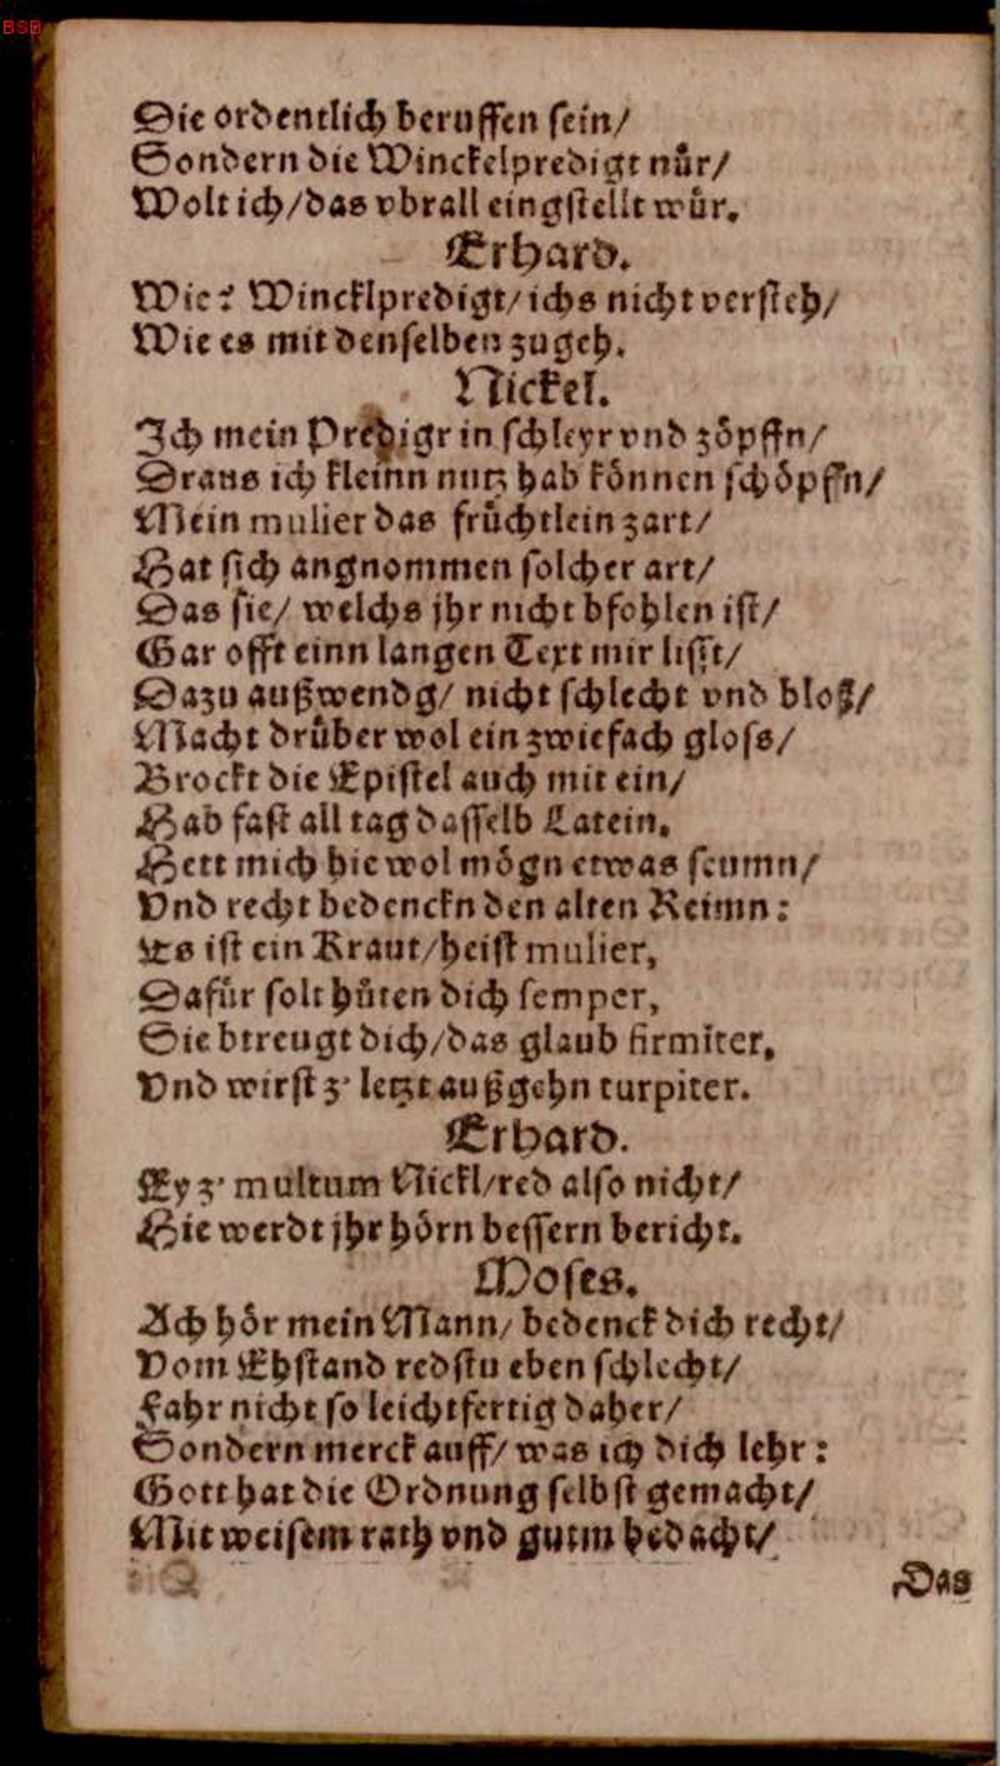 BSB
Die ordentlich beruffen sein/
Sondern die Winckelpredigt nůr/
Wolt ich/das vbrall eingstellt wůr.
Erhard.
Wie? Wincklpredigt/ichs nicht versteh/
Wie es mit denselben zugeh.
Nickel.
Ich mein Predigt in schleyr vnd zöpffn/
Draus ich kleinn nutz hab können schöpffn/
Mein mulier das früchtlein zart/
Hat sich angnommen solcher art/
Das sie/ welchs jhr nicht bfohlen ist/
Gar offt einn langen Text mir lisst/
Dazu außwendg/ nicht schlecht vnd bloß/
Macht drüber wol ein zwiefach gloss/
Brockt die Epistel auch mit ein/
Hab fast all tag dasselb Latein.
Hett mich hie wol mögn etwas seumn/
Vnd recht bedenckn den alten Reimn:
Es ist ein Kraut/heist mulier,
Dafür solt hüten dich semper,
Sie btreugt dich/das glaub firmiter,
Vnd wirst z' letzt außgehn turpiter.
Erhard.
Ey z' multum Nickl/red also nicht/
Hie werdt jhr hörn bessern bericht.
Moses.
Ach hör mein Mann/ bedenck dich recht/
Vom Ehstand redstu eben schlecht/
Fahr nicht so leichtfertig daher/
Sondern merck auff/ was ich dich lehr:
Gott hat die Ordnung selbst gemacht/
Mit weisem rath vnd gutm bedacht/
Das